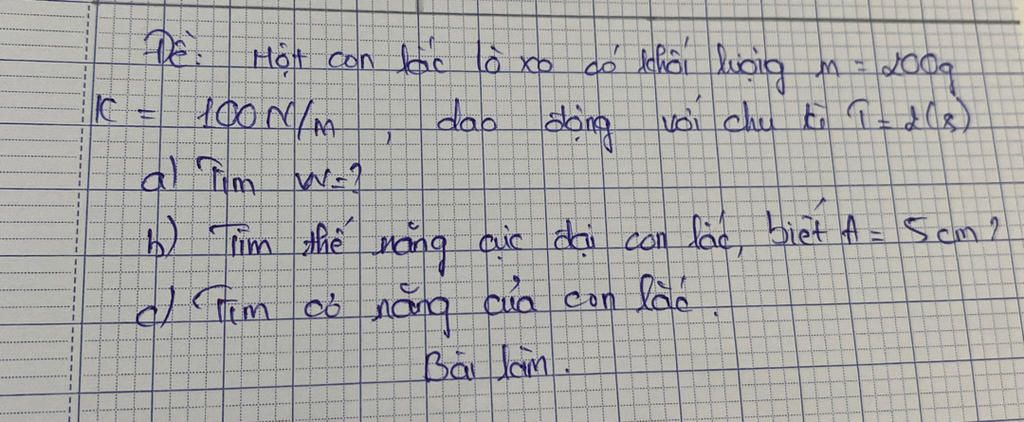 Đề: Một con lắc lò xo có khối lượng m = 200g
K = 100N/m, dao động với chu kì T = 2(s)
a) Tìm W=?
b) Tìm thế năng cực đại con lắc, biết A = 5cm?
c) Tìm cơ năng của con lắc.
Bài làm.